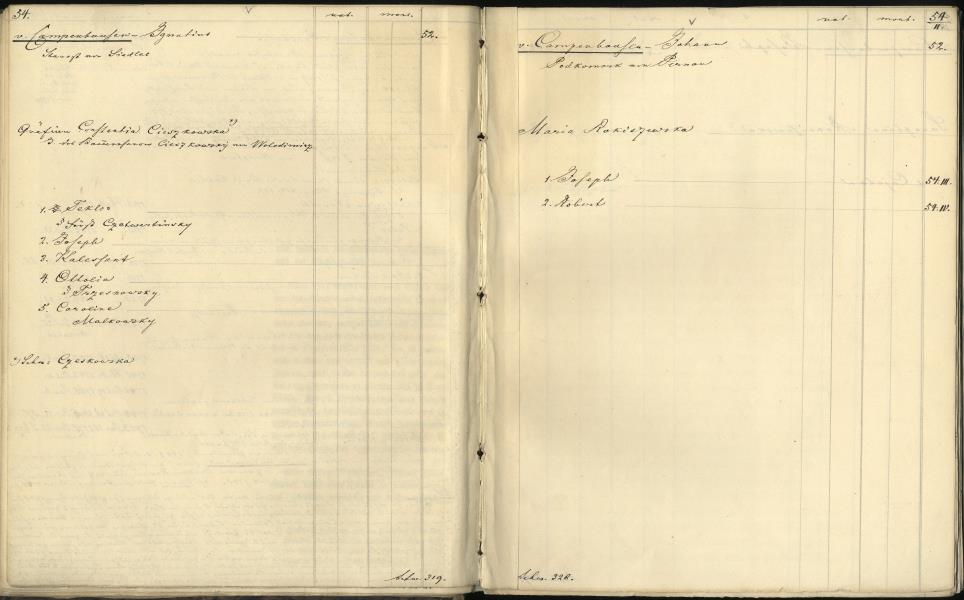 54.
nat. mort.
v. Campenhausen - Ignatius 52.
Starost von Siedlec
Gräfinn Constantia Cieszkowska *)
T. des Kammerherrn Cieszkowsky von Wolodimirz
1. Tekla
Fürst Czetwertinsky
2. Joseph
3. Kalessant
4. Ottolia
Trzesnowsky
5. Caroline
Malkowsky
*) Schw: Czeskowska
Schw. 319.
nat. mort. 54
II.
v. Campenhausen - Johann 52.
Podkomork von Pernau
Maria Rokiszewska
1. Joseph 54. III.
2. Robert 54. IV.
Schw. 328.